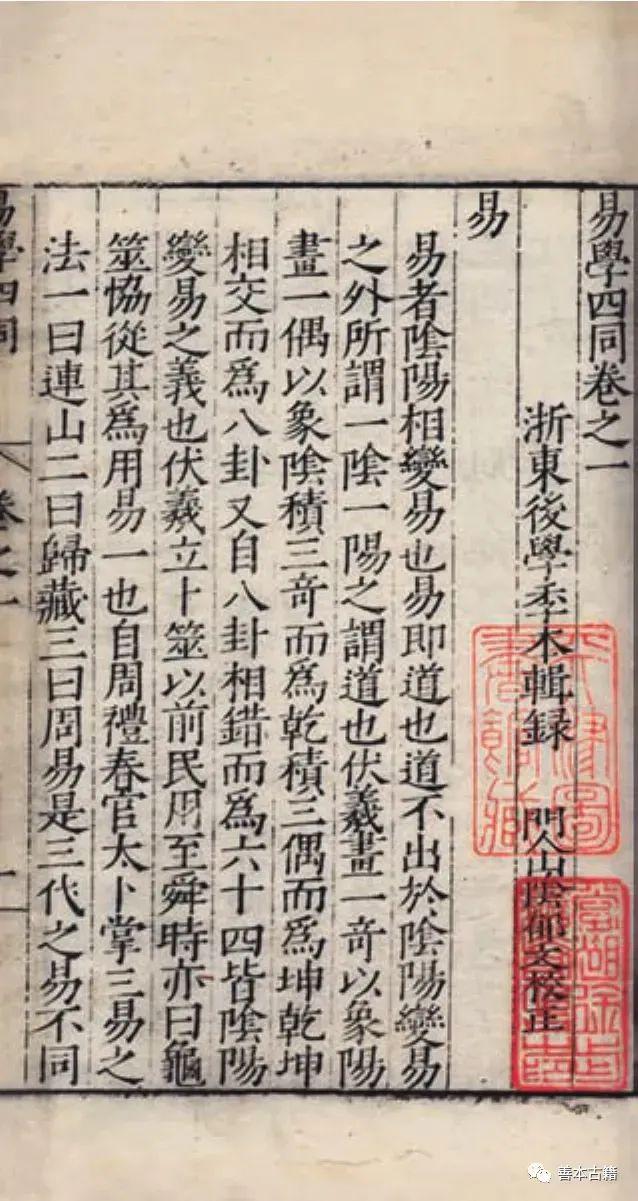 易學四同卷之一
浙東後學季本輯錄 門人山陰郁文校正
易
易者陰陽相變易也易即道也道不出於陰陽變易
之外所謂一陰一陽之謂道也伏羲畫一奇以象陽
畫一偶以象陰積三奇而爲乾積三偶而爲坤乾坤
相交而爲八卦又自八卦相錯而爲六十四皆陰陽
變易之義也伏羲立卜筮以前民用至舜時亦曰龜
筮協從其爲用易一也自周禮春官太卜掌三易之
法一曰連山二曰歸藏三曰周易是三代之易不同
易學四同
卷之一
一
善本古籍